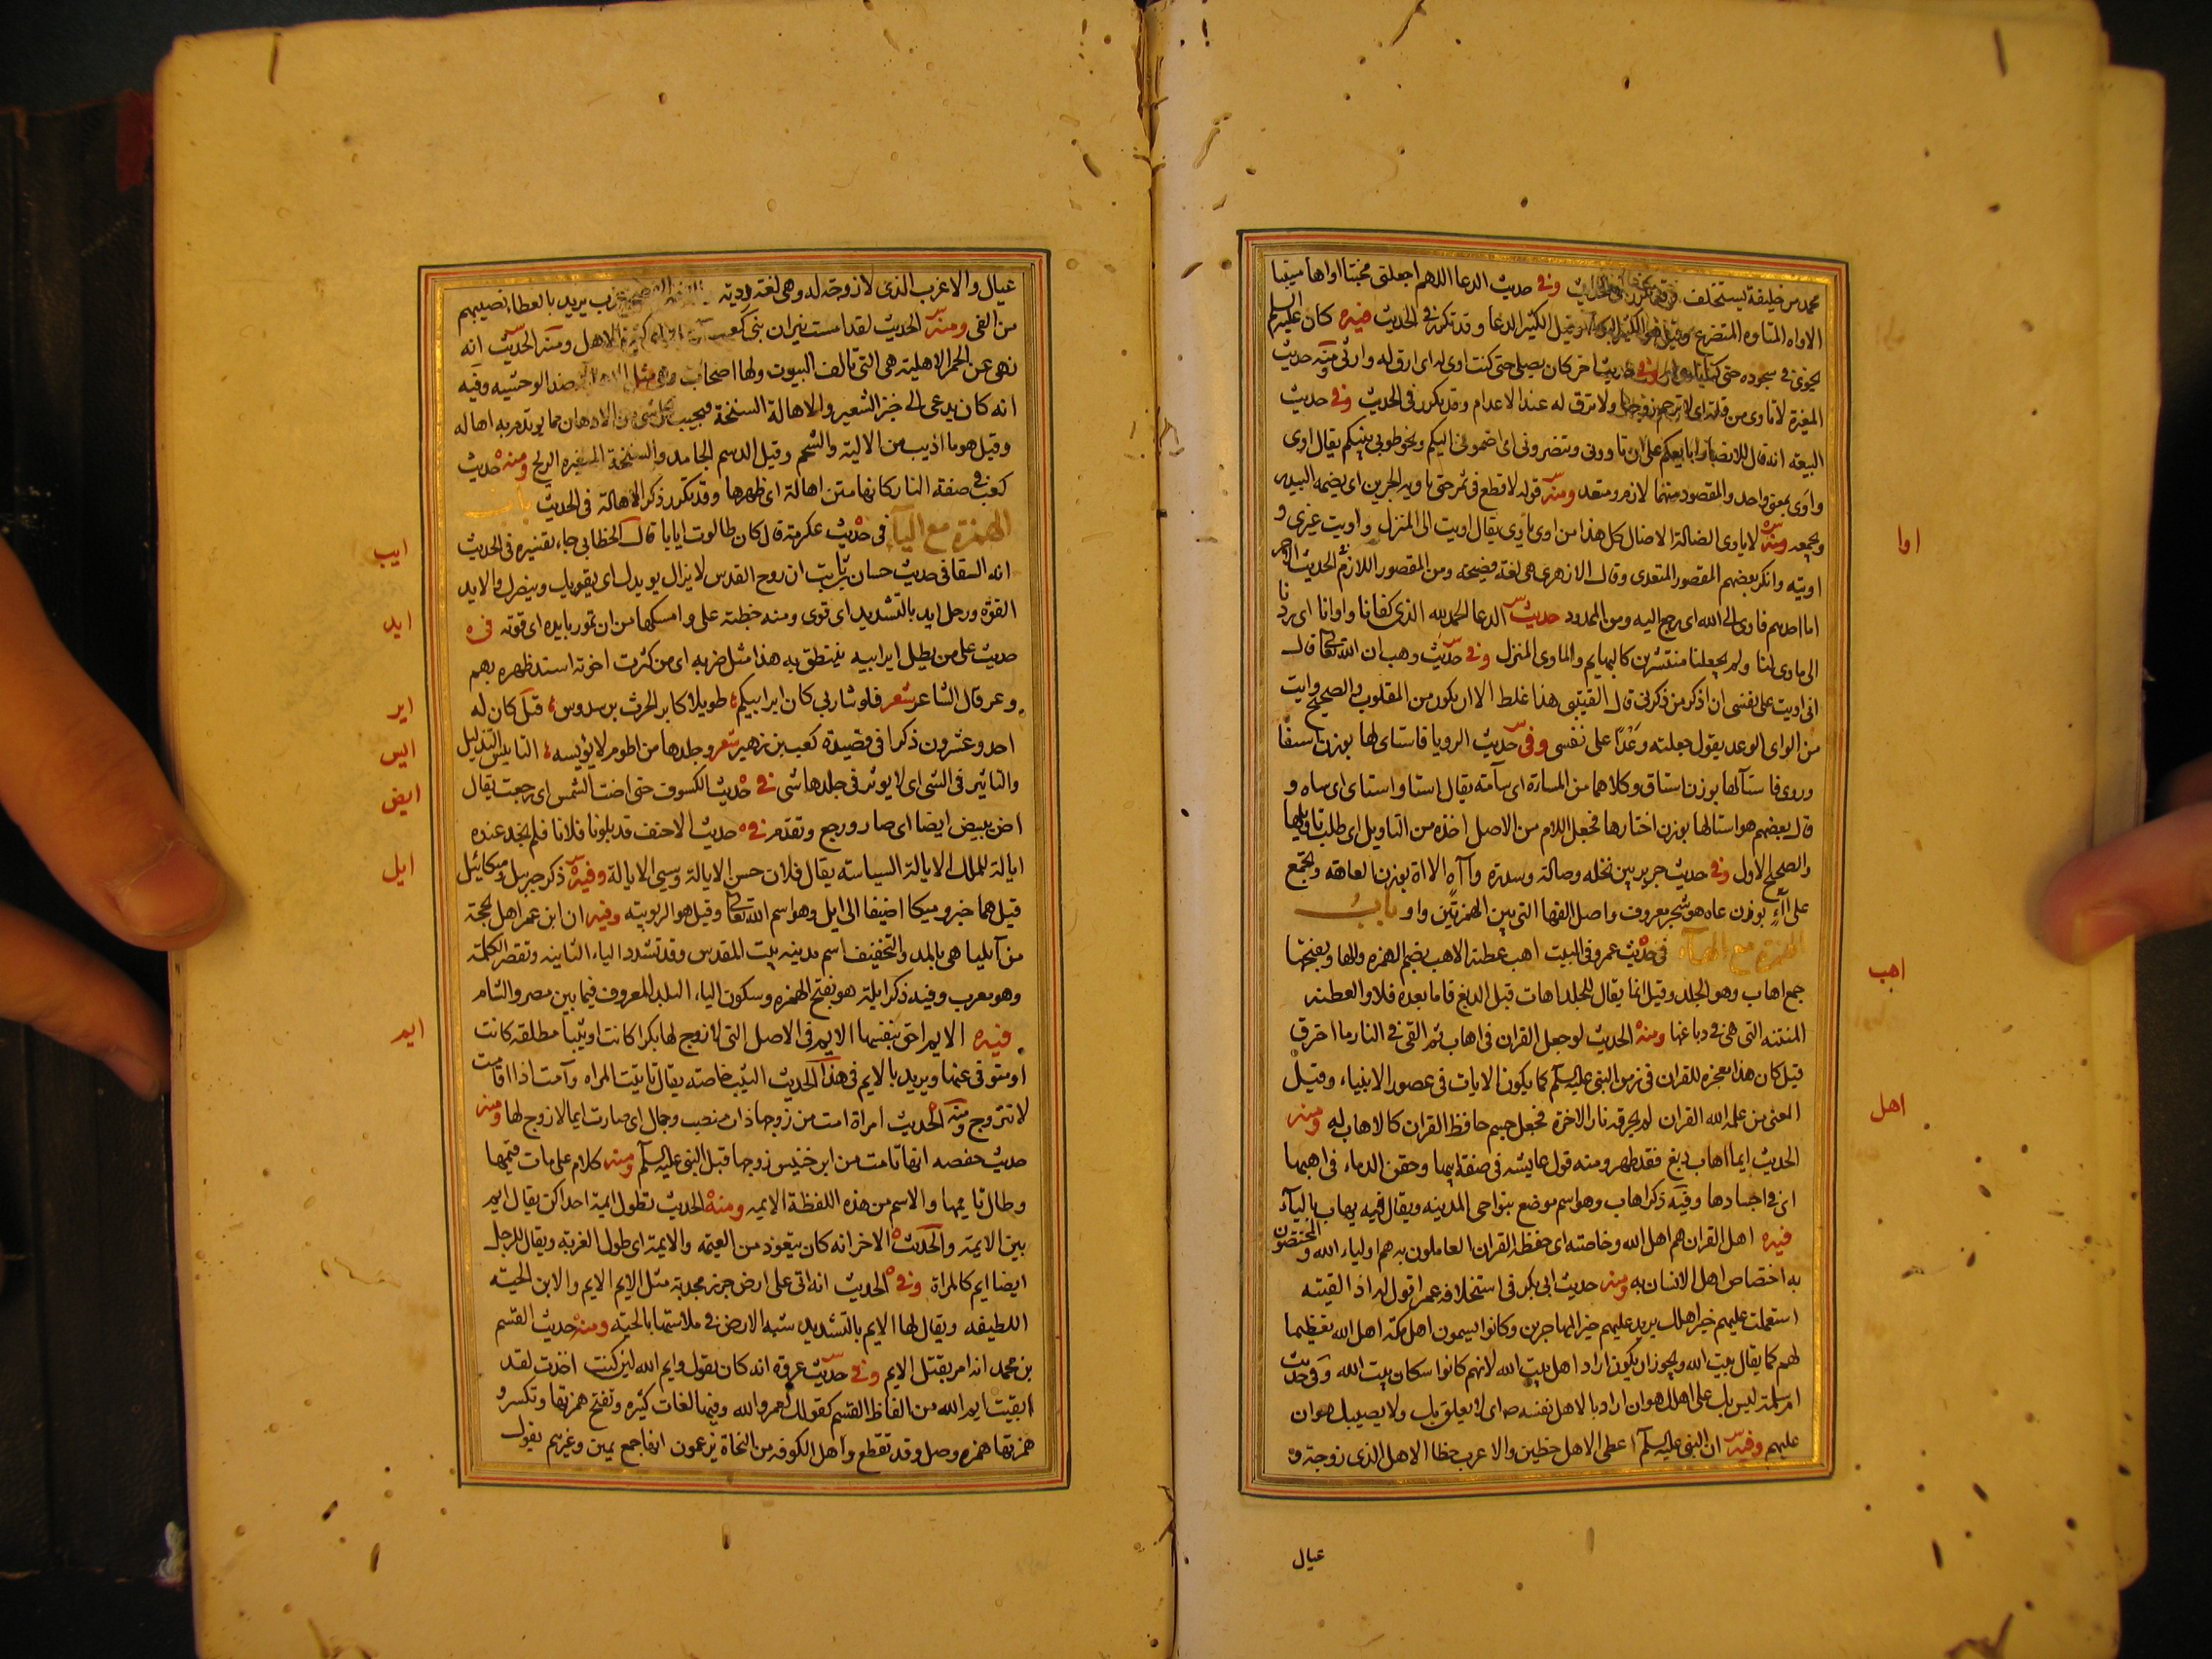 محمد من خليفة يستخلف وفى حديث الدعا اللهم اجعلنى مخبتا اواها منيبا
الاواه المتاوه المتضرع وقيل هو الكثير البكا وقيل الكثير الدعا وقد تكرر فى الحديث فيه كان عليه السلم
يخوى فى سجوده حتى كنا ناوى له وفى حديث اخر كان يصلى حتى كنت اوى له اى ارق له وارثى ومنه حديث
المغيرة لا تاوى من قلة اى لا ترحم زوجها ولا ترق له عند الاعدام وقد تكرر فى الحديث وفى حديث
البيعة انه قال للانصار ابايعكم على ان تاوونى وتنصرونى اى تضمونى اليكم وتحوطونى بينكم يقال اوى
واوى بمعنى واحد والمقصود منهما لازم ومتعد ومنه قوله لا قطع فى ثمر حتى ياويه الجرين اى يضمه البيدر
ويجمعه ومنه لا ياوى الضالة الا ضال كل هذا من اوى ياوى يقال اويت الى المنزل واويت غيرى و
اويته وانكر بعضهم المقصور المتعدى وقال الازهرى هى لغة فصيحة ومن المقصور اللازم الحديث الاخر
اما احدهم فاوى الى الله اى رجع اليه ومن الممدود حديث الدعا الحمد لله الذى كفانا واوانا اى ردنا
الى ماوى لنا ولم يجعلنا منتشرين كالبهايم والماوى المنزل وفى حديث وهب ان الله تعالى قال
انى اويت على نفسى ان اذكر من ذكرنى قال القتيبى هذا غلط الا ان يكون من المقلوب والصحيح وايت
من الواى الوعد يقول جعلته وعدا على نفسى وفى حديث الرويا فاستاى لها بوزن استقا
وروى فاستآلها بوزن استاق وكلاهما من المساءة اى سآءته يقال استا واستاى اى ساه و
قال بعضهم هو استالها بوزن اختارها فجعل اللام من الاصل اخذه من التاويل اى طلب تاويلها
والصحيح الاول وفى حديث جرير بين نخله وضالة وسدرة وآآءه الااة بوزن العاهة وتجمع
على اآء بوزن عاه هو شجر معروف واصل الفها التى بين الهمزتين واو باب
الهمزة مع الهآء فى حديث عمر وفى البيت اهب عطنة الاهب بضم الهمزه والها وبفتحها
جمع اهاب وهو الجلد وقيل انما يقال للجلد اهاب قبل الدبغ فاما بعده فلا والعطنة
المنتنة التى هى فى دباغها ومنه الحديث لو جعل القران فى اهاب ثم القى فى النار ما احترق
قيل كان هذا معجزه للقران فى زمن النبى عليه السلم كما يكون الايات فى عصور الانبياء وقيل
المعنى من علمه الله القران لم يحرقه نار الاخرة فجعل جسم حافظ القران كالاهاب له ومنه
الحديث ايما اهاب دبغ فقد طهر ومنه قول عايشه فى صفة ابيها وحقن الدماء فى اهبها
اى فى اجسادها وفيه ذكر اهاب وهو اسم موضع بنواحى المدينه ويقال فيه يهاب باليآء
فيه اهل القران هم اهل الله وخاصته اى حفظة القران العاملون به هم اولياء الله والمختصون
به اختصاص اهل الانسان به ومنه حديث ابى بكر فى استخلافه عمر اقول له اذا لقيته
استعملت عليهم خير اهلك يريد عليهم خير المهاجرين وكانوا يسمون اهل مكة اهل الله تعظيما
لهم كما يقال بيت الله ويجوز ان يكون اراد اهل بيت الله لانهم كانوا سكان بيت الله وفى حديث
ام سلمة ليس بك على اهلك هوان اراد بالاهل نفسه اى لا يعلق بك ولا يصيبك هوان
عليهم وفيه ان النبى عليه السلم اعطى الاهل حظين والاعرب حظا الاهل الذى زوجة و
عيال
اوا
اهب
اهل
عيال والاعزب الذى لا زوجة له وهى لغة ردية يريد بالعطاء نصيبهم
من الفى ومنه الحديث لقد امست نيران بنى كعب الاهل ومنه الحديث انه
نهى عن الحمر الاهلية هى التى تالف البيوت ولها اصحاب وهى مثل ضد الوحشيه وفيه
انه كان يدعى الى خبز الشعير والاهالة السنخة فيجيب كل شى من الادهان مما يوتدم به اهاله
وقيل هو ما اذيب من الالية والشحم وقيل الدسم الجامد والسنخة المتغيره الريح ومنه حديث
كعب فى صفة النار كانها متن اهالة اى ظهرها وقد تكرر ذكر الاهالة فى الحديث باب
الهمزة مع اليآء فى حديث عكرمة قال كان طالوت ايابا قال الخطابى جاء تفسيره فى الحديث
انه السقا فى حديث حسان بن ثابت ان روح القدس لا يزال يويدك اى يقويك وينصرك والايد
القوة ورجل ايد بالتشديد اى قوى ومنه خطبة على وامسكها من ان تمور بايده اى قوته فى
حديث على من يطل اير ابيه ينتطق به هذا مثل ضربه اى من كثرت اخوته استد ظهره بهم
وعز قال الشاعر شعر فلو شا ربى كان اير ابيكم طويلا كاير الحرث بن سدوس قيل كان له
احد وعشرون ذكرا فى قصيدة كعب بن زهير شعر وجلدها من اطوم لا يؤيسه التاييس التذليل
والتاثير فى الشى اى لا يوثر فى جلدها شى فى حديث الكسوف حتى اضت الشمس اى رجعت يقال
اض يبيض ايضا اى صار ورجع وتقدم فى حديث الاحنف قد بلونا فلانا فلم نجد عنده
ايالة للملك الايالة السياسة يقال فلان حسن الايالة وسيى الايالة وفيه ذكر جبريل وميكائيل
قيل هما خبر وميكا اضيفا الى ايل وهو اسم الله تعالى وقيل هو الربوبية وفيه ان ابن عمر اهل بحجة
من آيليا هى بالمد والتخفيف اسم مدينه بيت المقدس وقد تشدد الياء الثانيه وتقصر الكلمة
وهو معرب وفيه ذكر ايلة هو بفتح الهمزه وسكون الياء البلد المعروف فيما بين مصر والشام
فيه الايم احق بنفسها الايم فى الاصل التى لا زوج لها بكرا كانت او ثيبا مطلقه كانت
او متوفى عنها ويريد بالايم فى هذا الحديث الثيب خاصة يقال تايمت المراه وآمت اذا اقامت
لا تتزوج ومنه الحديث امراة امت من زوجها ذات منصب وجمال اى صارت ايما لا زوج لها ومنه
حديث حفصه انها تامت من ابن خنيس زوجها قبل النبى عليه السلم ومنه كلام على مات قيمها
وطال تايمها والاسم من هذه اللفظة الايمه ومنه الحديث تطول ايمة احداكن يقال ايم
بين الايمة والحديث الاخر انه كان يتعوذ من العيمه والايمة اى طول الغربة ويقال للرجل
ايضا ايم كالمراة وفى الحديث انه اتى على ارض جرز مجدبة مثل الايم الايم والاين الحية
اللطيفه ويقال لها الايم بالتشديد شبه الارض فى ملاستها بالحية ومنه حديث القسم
بن محمد انه امر بقتل الايم وفى حديث عروة انه كان يقول وايم الله لئن كنت اخذت لقد
ابقيت ايم الله من الفاظ القسم كقولك لعمر والله وفيها لغات كثيره وتفتح همزتها وتكسر و
همزتها همزه وصل وقد تقطع واهل الكوفه من النحاة يزعمون انها جمع يمين وغيرهم يقول
ايب
ايد
اير
ايس
ايض
ايل
ايم